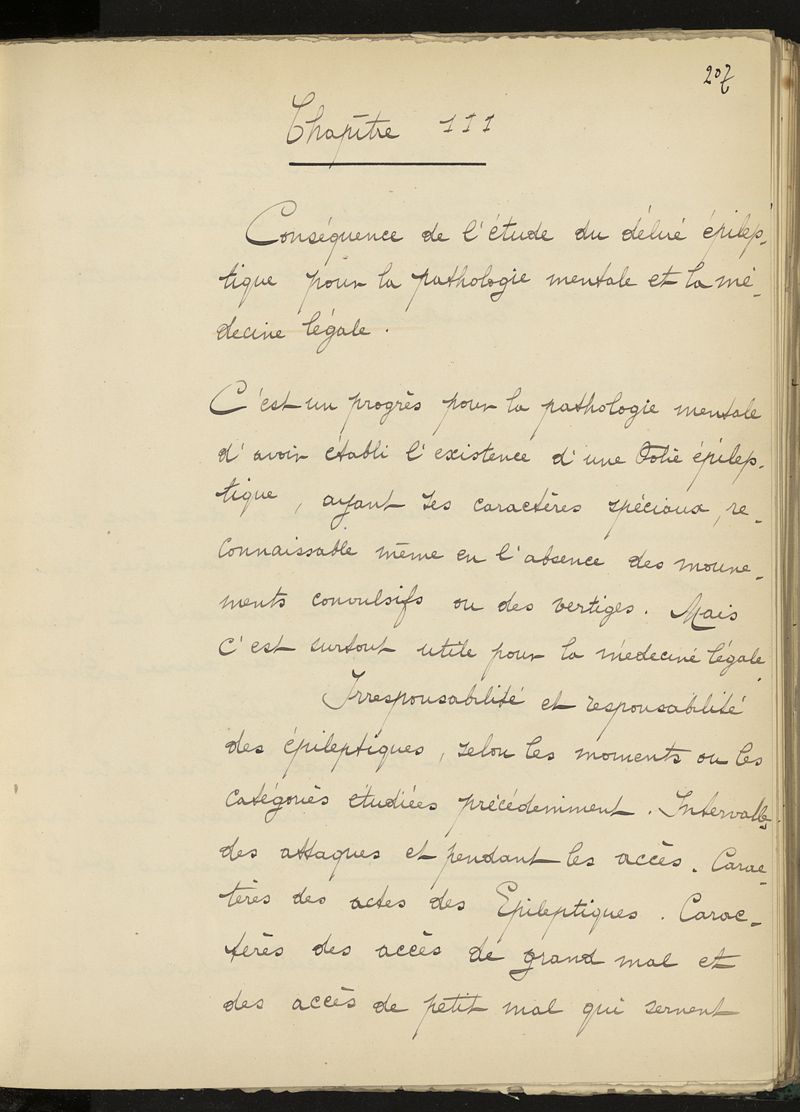 207
Chapitre III
Conséquence de l'étude du délire épilep-
tique pour la pathologie mentale et la mé-
decine légale.
C'est un progrès pour la pathologie mentale
d'avoir établi l'existence d'une Folie épilep-
tique, ayant ses caractères spéciaux, re-
connaissable même en l'absence des mouve-
ments convulsifs ou des vertiges. Mais
c'est surtout utile pour la médecine légale.
Irresponsabilité et responsabilité
des épileptiques, selon les moments ou les
catégories étudiées précédemment. Intervalles
des attaques et pendant les accès. Carac-
tères des actes des Epileptiques. Carac-
tères des accès de grand mal et
des accès de petit mal qui servent